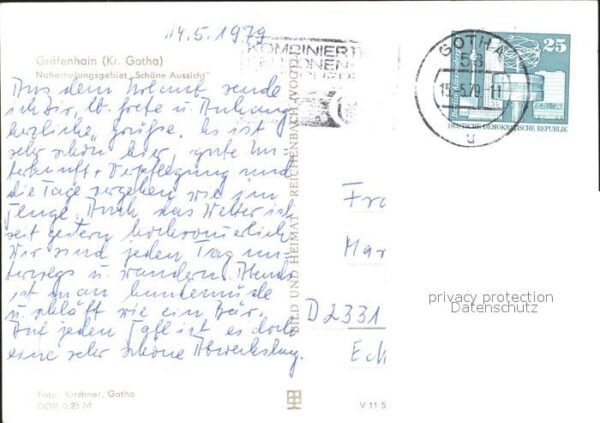 14.5.1979
Gräfenhain (Kr. Gotha)
Naherholungsgebiet "Schöne Aussicht"
Aus dem Urlaub sende
ich Dir, lb. Grete u. Anhang
herzliche Grüße. Es ist
sehr schön hier, gute Un-
terkunft + Verpflegung und
die Tage vergehen wie im
Fluge. Auch das Wetter ist
seit gestern hochsommerlich.
Wir sind jeden Tag un-
terwegs u. wandern. Abends
ist man hundemüde
u. schläft wie ein Bär.
Auf jeden Fall ist es doch
eine sehr schöne Abwechslung.
Foto: Kirchner, Gotha
DDR 0,25 M
V 11 5
BILD UND HEIMAT REICHENBACH (VOGTL
KOMBINIERT
GOTHA
58
15.5.79-11
u
25
DEUTSCHE DEMOKRATISCHE REPUBLIK
Fra
Mar
D 2331
Eck
privacy protection
Datenschutz